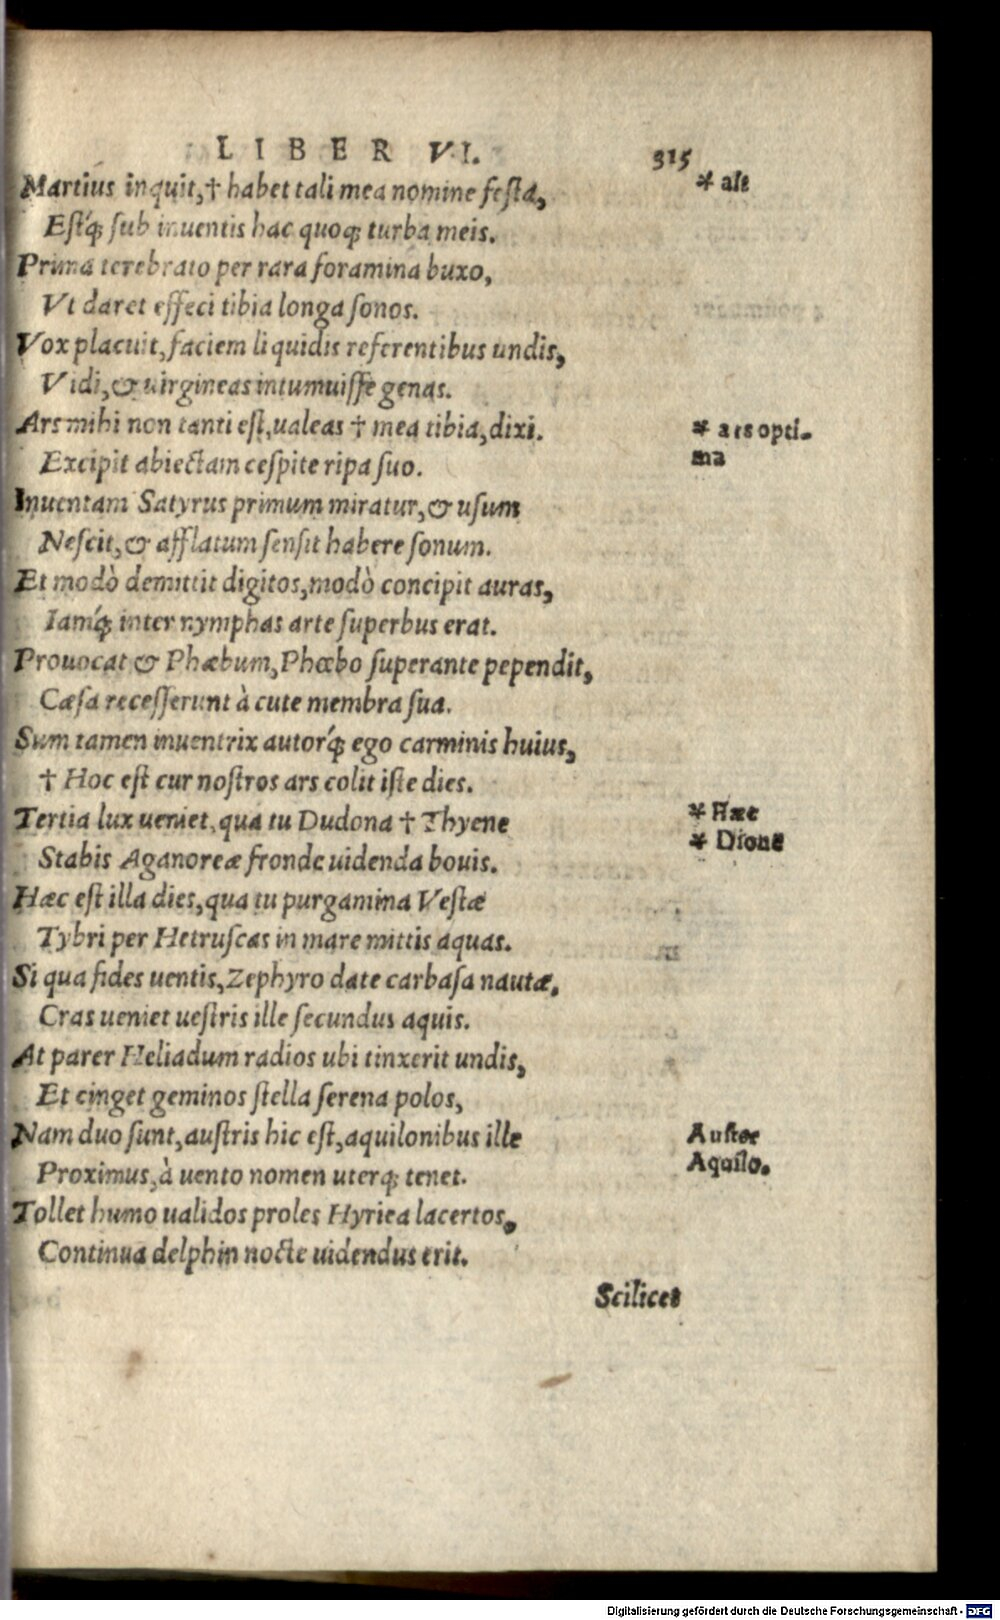 LIBER VI. 315
Martius inquit,† habet tali mea nomine festa, * ait
Estq́; sub inuentis hac quoq; turba meis.
Prima terebrato per rara foramina buxo,
Vt daret effeci tibia longa sonos.
Vox placuit, faciem liquidis referentibus undis,
Vidi, & uirgineas intumuisse genas.
Ars mihi non tanti est, ualeas † mea tibia, dixi. * ars opti-
Excipit abiectam cespite ripa suo. ma
Inuentam Satyrus primum miratur, & usum
Nescit, & afflatum sensit habere sonum.
Et modò demittit digitos, modò concipit auras,
Iamq́; inter nymphas arte superbus erat.
Prouocat & Phœbum, Phœbo superante pependit,
Cæsa recesserunt à cute membra sua.
Sum tamen inuentrix autorq́; ego carminis huius,
† Hoc est cur nostros ars colit iste dies.
Tertia lux ueniet, qua tu Dudona † Thyene * Hæc
Stabis Aganoreæ fronde uidenda bouis. * Dione
Hæc est illa dies, qua tu purgamina Vestæ
Tybri per Hetruscas in mare mittis aquas.
Si qua fides uentis, Zephyro date carbasa nautæ,
Cras ueniet uestris ille secundus aquis.
At parer Heliadum radios ubi tinxerit undis,
Et cinget geminos stella serena polos,
Nam duo sunt, austris hic est, aquilonibus ille Auster
Proximus, à uento nomen uterq; tenet. Aquilo.
Tollet humo ualidos proles Hyriea lacertos,
Continua delphin nocte uidendus erit.
Scilicet
Digitalisierung gefördert durch die Deutsche Forschungsgemeinschaft - DFG